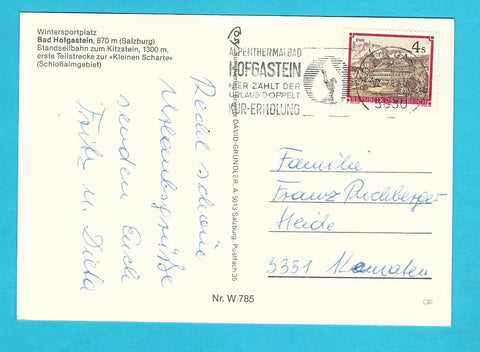 Wintersportplatz
Bad Hofgastein, 870 m (Salzburg)
Standseilbahn zum Kitzstein, 1300 m,
erste Teilstrecke zur »Kleinen Scharte«
(Schloßalmgebiet)
Recht schöne
Urlaubsgrüße
senden Euch
Fritz u. Dieta
DAVID-GRÜNDLER A-5013 Salzburg, Postfach 35
ALPENTHERMALBAD
HOFGASTEIN
HIER ZÄHLT DER
URLAUB DOPPELT
KUR-ERHOLUNG
4s
REPUBLIK ÖSTERREICH
Familie
Franz Puchberger
Heide
3331 Kematen
Nr. W 785